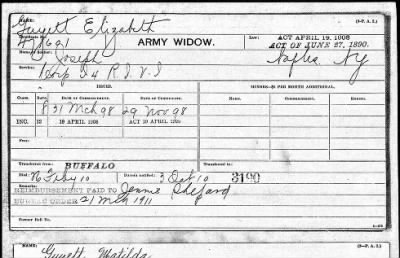 NAME: (3-P. A. 3.)
Guyett Elizabeth
ARMY WIDOW.
LAW:
ACT APRIL 19, 1908
ACT OF JUNE 27, 1890.
Joseph
Naples Ny
Service:
Corp I 4 R I V I
ISSUED.
MINORS—$2 PER MONTH ADDITIONAL.
CLASS. RATE. DATE OF COMMENCEMENT. DATE OF CERTIFICATE.
8 31 Mch 98 29 Nov 98
INC. 12 19 APRIL 1908 ACT 19 APRIL 1908
Transferred from BUFFALO
Died: 16 Feby 10 Bureau notified: 3 Oct 10 3190
Remarks:
REIMBURSEMENT PAID TO Jennie Shepard
BUREAU ORDER 21 Mch 1911
Former Roll No.
NAME: (3-P. A. 3.)
Guyett, Matilda